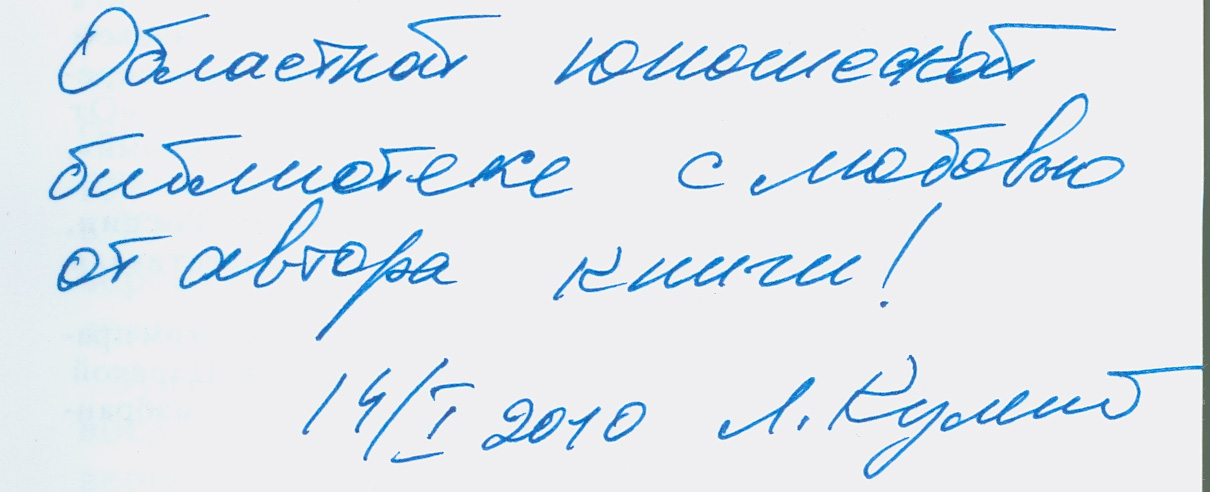 Областной юношеской
библиотеке с любовью
от автора книги!
14/I 2010 Л.